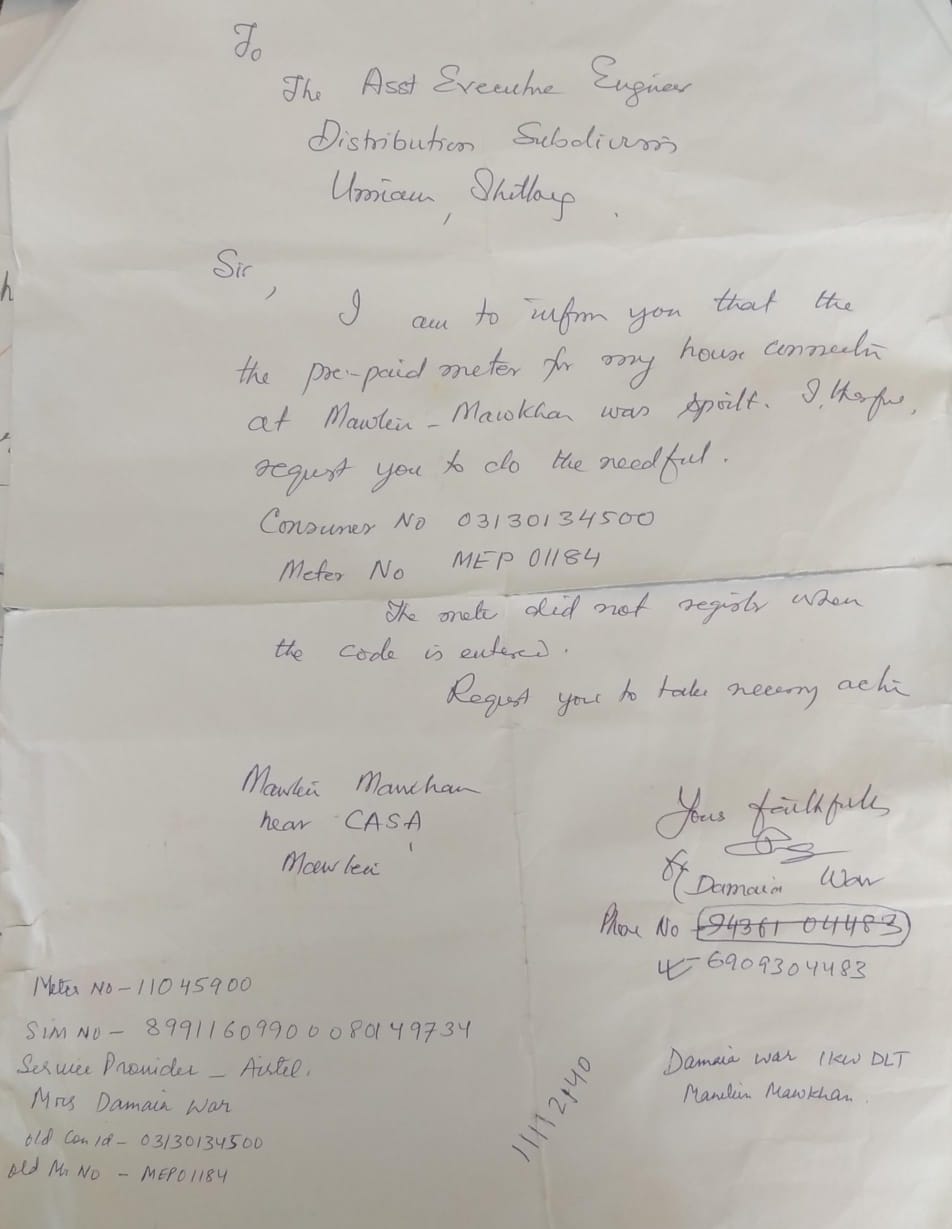 To
The Asst Executive Engineer
Distribution Subdivision
Umiam, Shillong.
Sir,
I am to inform you that the
the pre-paid meter for my house connection
at Mawlein - Mawkhan was spoilt. I, therefore,
request you to do the needful.
Consumer No 03130134500
Meter No MEP 01184
The meter did not register when
the code is entered.
Request you to take necessary action
Mawlein Mawkhan
near CASA
Mawlein
Yours faithfully
Damain War
Phone No 94361 04483
6909304483
Meter No - 11045900
SIM NO - 89911609900080149734
Service Provider - Airtel.
Mrs Damain War
old Con id - 03130134500
old Mr No - MEP01184
11112140
Damain War 1KW DLT
Mawlein Mawkhan.